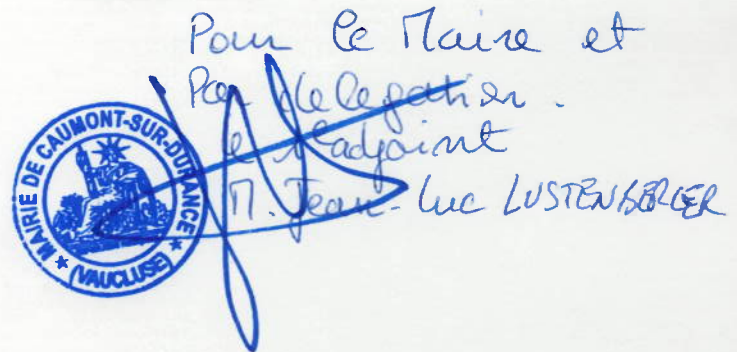 Pour le Maire et
Par delegation.
le adjoint
M. Jean-Luc LUSTENBERGER
MAIRIE DE CAUMONT-SUR-DURANCE
(VAUCLUSE)